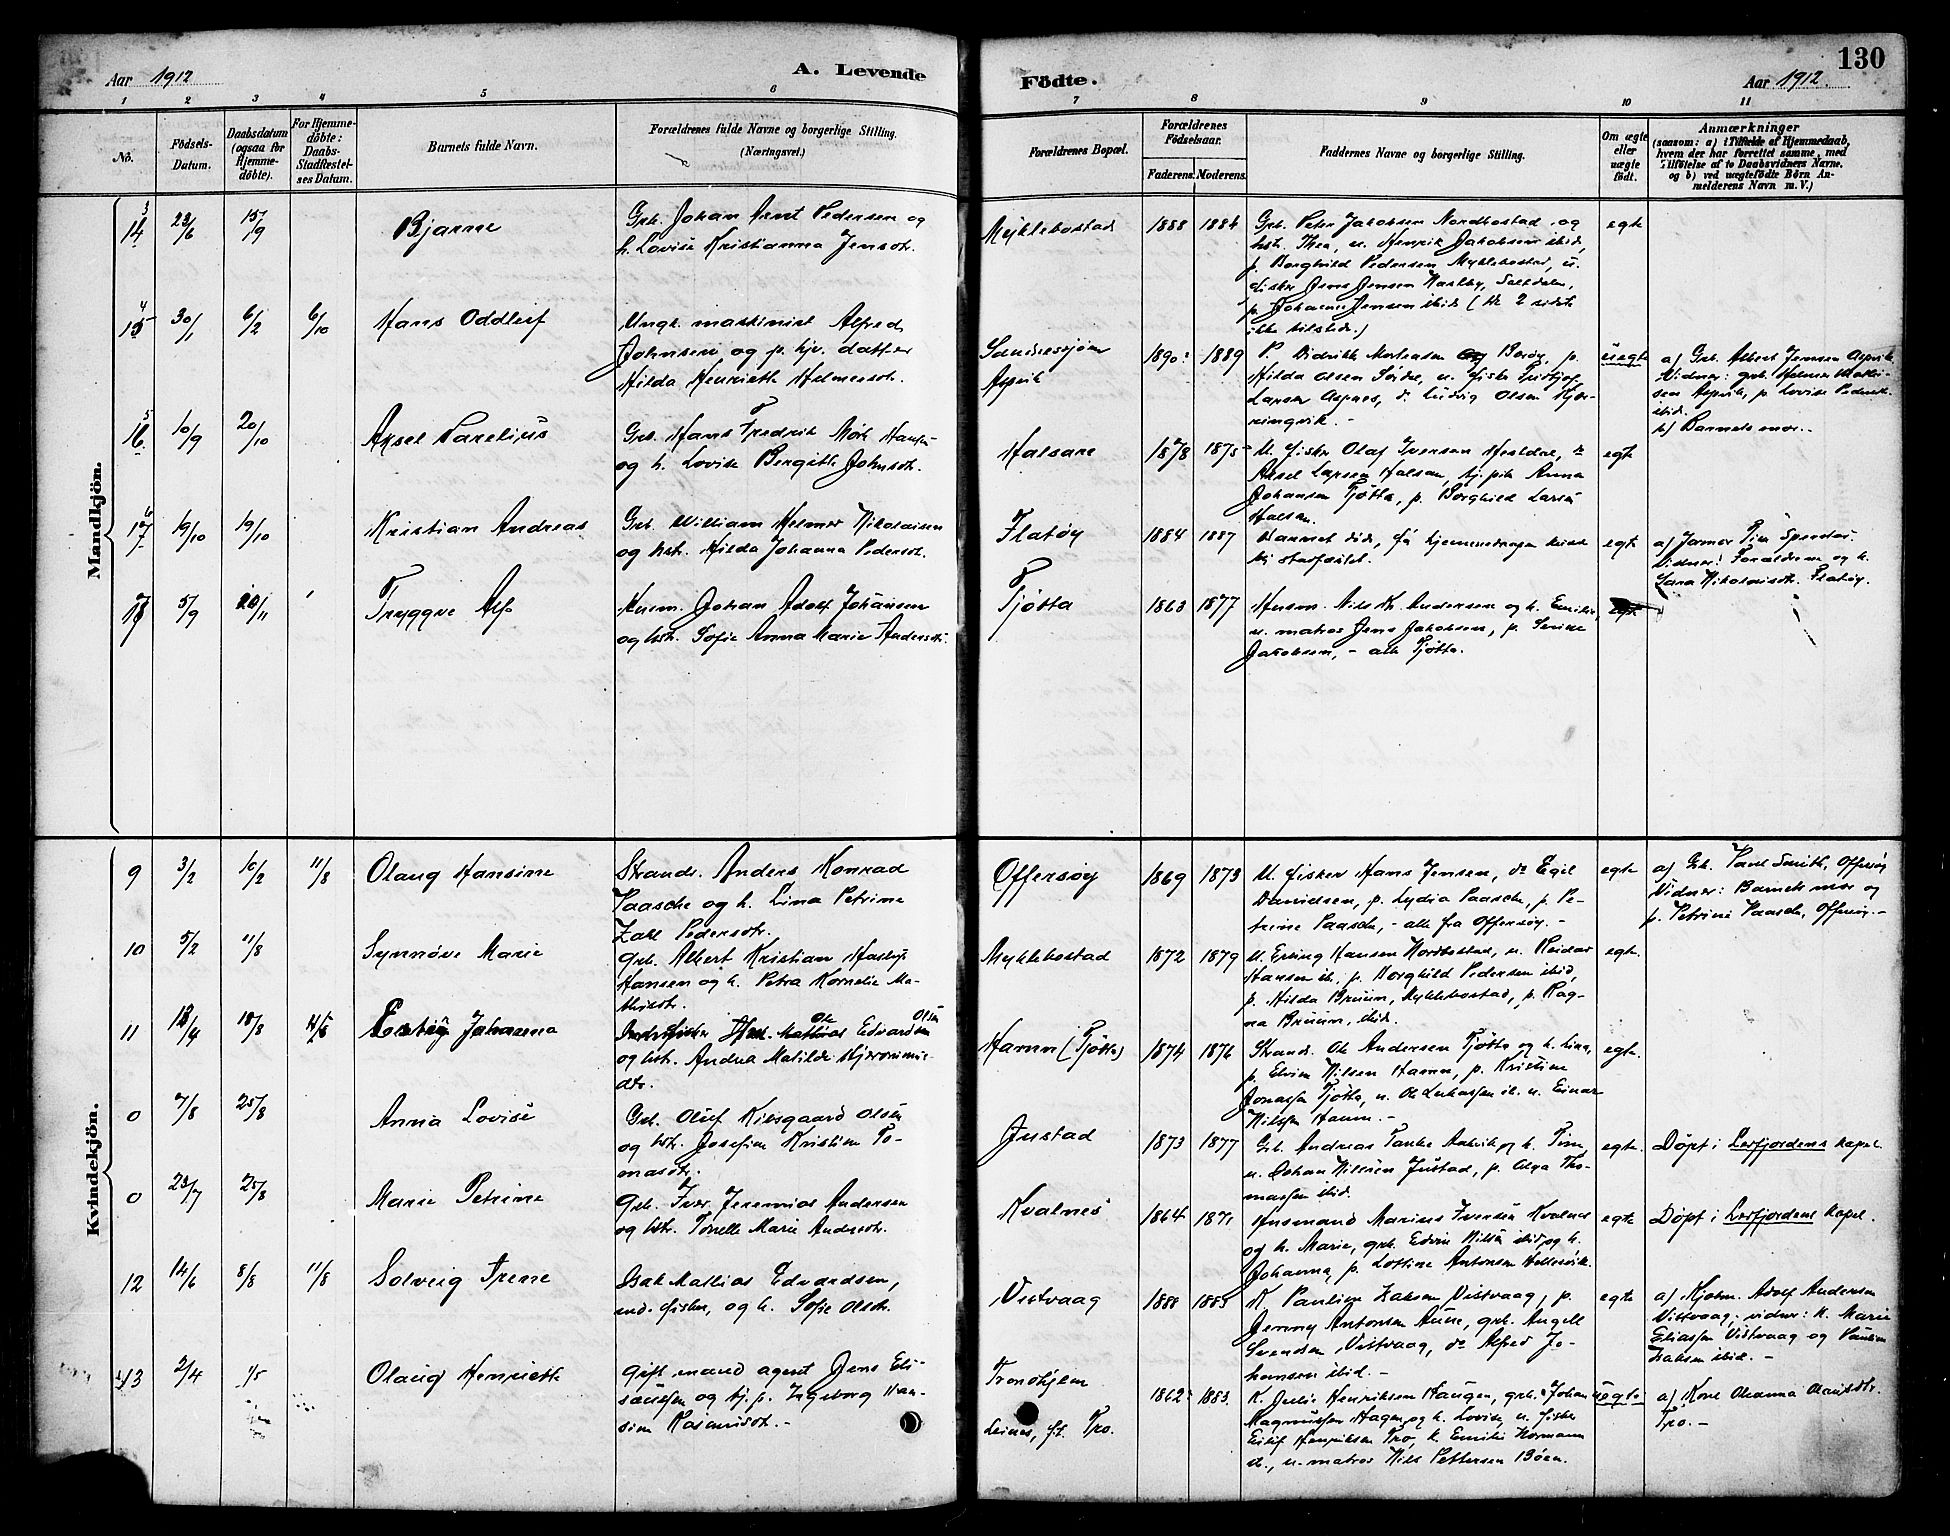 Aar 1912
A. Levende
Födte.
Aar 1912.
130
1 2 3 4 5 6 7 8 9 10 11
No.
Födsels-
Datum.
Daabsdatum
(ogsaa for
Hjemme-
döbte).
For Hjemme-
döbte:
Daabs-
Stadfæstel-
ses Datum.
Barnets fulde Navn.
Forældrenes fulde Navne og borgerlige Stilling.
(Næringsvei.)
Forældrenes Bopæl.
Forældrenes
Födselsaar.
Faderens. Moderens.
Faddernes Navne og borgerlige Stilling.
Om ægte
eller
uægte
födt.
Anmærkninger
(saasom: a) i Tilfælde af Hjemmedaab,
hvem der har forrettet samme, med
Tilföielse af to Daabsvidners Navne.
og b) ved uægtefödte Börn An-
melderens Navn m. V.)
Mandkjön.
3
14 23/6 15/9
Bjarne
Grb. Johan Arnt Pedersen og
h. Lovise Kristianna Jensdt.
Myklebostad
1888 1884
Grb. Peter Jakobsen Nordbostad og
hst. Thea, u. Henrik Jakobsen ibid,
p. Borghild Pedersen Myklebostad, u.
fisker Jens Jensen Saltdalen,
p. Johanne Jensen ibid (de 2 sidste
ikke tilstede.)
egte
4
15 30/1 6/2 6/10
Hans Oddleif
Ungk. maskinist Alfred
Johnsen og p. hjv. datter
Hilda Henriette Helmersdt.
Sandnessjøen
Aspvik
1890: 1889
P. Didrikke Mortensen Barøy, p.
Hilda Olsen Søvik, u. fisker Fritjof
Larsen Aspnes, do Ludvig Olsen
uegte
a) Grb. Albert Jensen Aspvik
Vidner: grb. Helmer
Aspvik, p. Lovise Pedersdt.
ibid.
b) Barnets mor.
5
16 10/9 20/10
Aksel Parelius
Grb. Hans Fredrik Mørk Hansen
og h. Lovise Bergitte Johnsdt.
Halsare
1878 1875
U. fisker Olaf Iversen
Aksel Larsen Halsan, tj.pike Anna
Johansen Tjøtta, p. Borghild Larsen
Halsan.
egte
6
17 19/10 19/10
Kristian Andreas
Grb. William Helmer Nikolaisen
og hst. Hilda Johanna Pedersdt.
Flatøy
1884 1887
Barnet døde, få hjemmedaapen kunde
bli stadfæstet.
egte
a)
Vidner: Forældrene og h.
Sara Nikolaisdt. Flatøy.
7
18 5/9
Tryggve Alf
Husm. Johan Adolf Johansen
og hst. Sofie Anna Marie Andersdt.
Tjøtta
1863 1877
Husm. Nils Kr. Andersen og h. Emilie,
u. matros Jens Jakobsen, p.
Jakobsen, - alle Tjøtta.
egte
Kvindekjön.
9 3/2 10/2 11/8
Olaug Hansine
Strands. Anders Konrad
Paasche og h. Lina Petrine
Zahl Pedersdtr.
Offersøy
1869 1873
U. fisker Hans Jensen, do Egil
Danielsen, p. Lydia Paasche, p. Pe-
trine Paasche, - alle fra Offersøy. -
egte
a) Grb. Smith, Offersøy
Vidner: Barnets mor og
p. Petrine Paasche, Offersøy. -
10 5/2 11/8
Synnøve Marie
Grb. Albert Kristian Hasby
Hansen og h. Petra Kornelie Ma-
thisdtr.
Myklebostad
1872 1879
U. Erling Hansen Nordbostad, u. Reidar
Hansen ib., p. Borghild Pedersen ibid,
p. Hilda Bruun, Myklebostad, p. Rag-
na Bruun, ibid.
egte.
11 18/4 18/8
Johanna
Ole Mathias Edvardsen Olsen
og hst. Andrea Matilde Hjeronimus-
dtr.
Hamn (Tjøtta)
1874 1876
Strands. Ole Andersen Tjøtta og h. Lina,
p. Elvine Nilsen Hamn, p. Kristine
Jonassen Tjøtta, u. Ole Lukassen ib. u. Einar
Nilssen Hamn. -
egte.
0 7/8 25/8
Anna Lovise
Grb. Oluf Kilsgaard Olsen
og hst. Josefine Kristine To-
masdtr.
Justad
1873 1877
Grb. Andreas h. Trine
u. Johan Nilssen Justad, p. Olga Tho-
massen ibid.
egte.
Døpt i Leirfjordens kapel.
0 23/7 25/8
Marie Petrine
Grb. Iver Jeremias Andersen
og hst. Torelle Marie Andersdt.
Kvalnes
1864 1871
Husmand Marius Iversen Kvalnes
og h. Marie, grb. Edvin Nilsen ibid og h.
Johanna, p. Lottine Antonsen Hellesvik.
egte
Døpt i Leirfjordens kapel.
12 14/6 8/8 11/8
Solveig Irene
Isak Mathias Edvardsen,
ind. fisker, og h. Sofie Olsdt.
Vistvaag
1888 1885
K. Pauline Zaksen Vistvaag, p.
Jenny Antonsen Aune, grb. Angell
Svendsen Vistvaag, do Alfred Jo-
hansen ibid. -
egte
a) Kjøbm. Adolf Andersen
Vistvaag; vidner: k. Marie
Eliassen Vistvaag og Pauline
Zaksen ibid. -
13 2/4 1/5
Olaug Henriette
Gift mand agent Jens Eli-
saussen og tj. p. Ingeborg Han-
sine Rasmusdt. -
Tronhjem
Leines, f. t. Tro.
1862: 1883.
K. Julie Henriksen Haugen, grb. Johan
Magnussen Hagen og h. Lovise, u. fisker
Eilif Henriksen Tro, k. Emilie Normann
ib., u. matros Nils Pettersen Bøen.
uegte
a) Kone Oleanna Olausdtr.
Tro. -